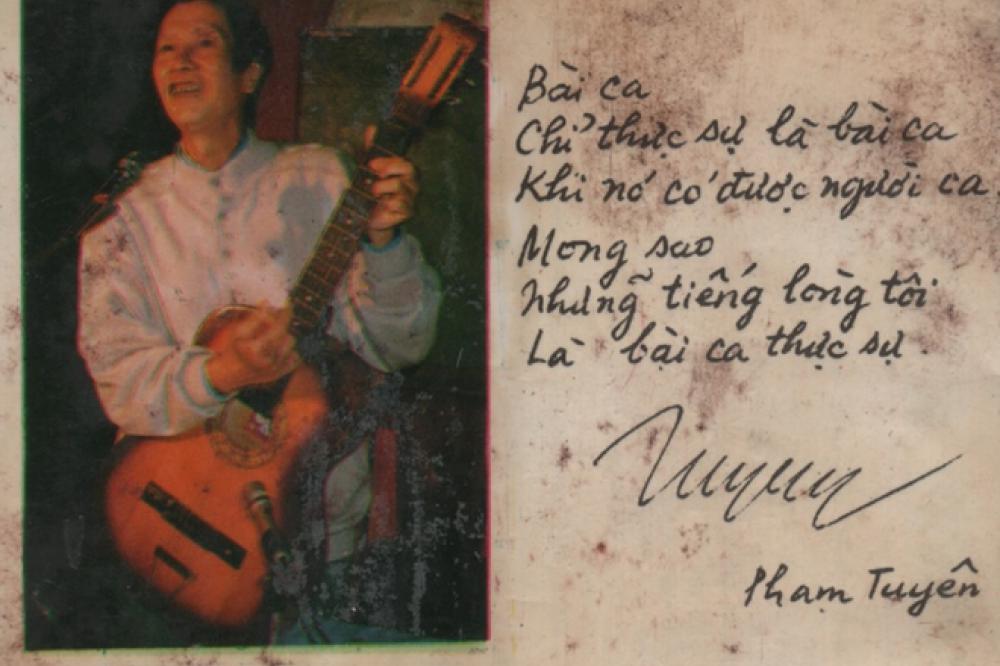 Bài ca
Chỉ thực sự là bài ca
Khi nó có được người ca
Mong sao
Những tiếng lòng tôi
Là bài ca thực sự.
Tuyên
Phạm Tuyên